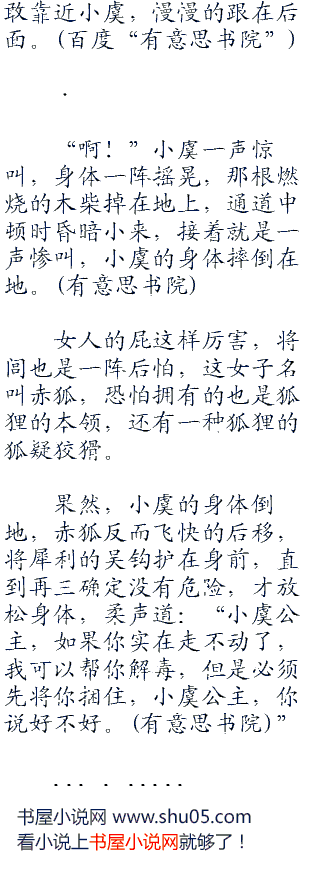 敢靠近小虞，慢慢的跟在后
面。(百度“有意思书院”)
.
“啊！”小虞一声惊
叫，身体一阵摇晃，那根燃
烧的木柴掉在地上，通道中
顿时昏暗小来，接着就是一
声惨叫，小虞的身体摔倒在
地。(有意思书院)
女人的屁这样厉害，将
闾也是一阵后怕，这女子名
叫赤狐，恐怕拥有的也是狐
狸的本领，还有一种狐狸的
狐疑狡猾。
果然，小虞的身体倒
地，赤狐反而飞快的后移，
将犀利的吴钩护在身前，直
到再三确定没有危险，才放
松身体，柔声道：“小虞公
主，如果你实在走不动了，
我可以帮你解毒，但是必须
先将你捆住，小虞公主，你
说好不好。(有意思书院)”
... . .....
书屋小说网 www.shu05.com
看小说上书屋小说网就够了！